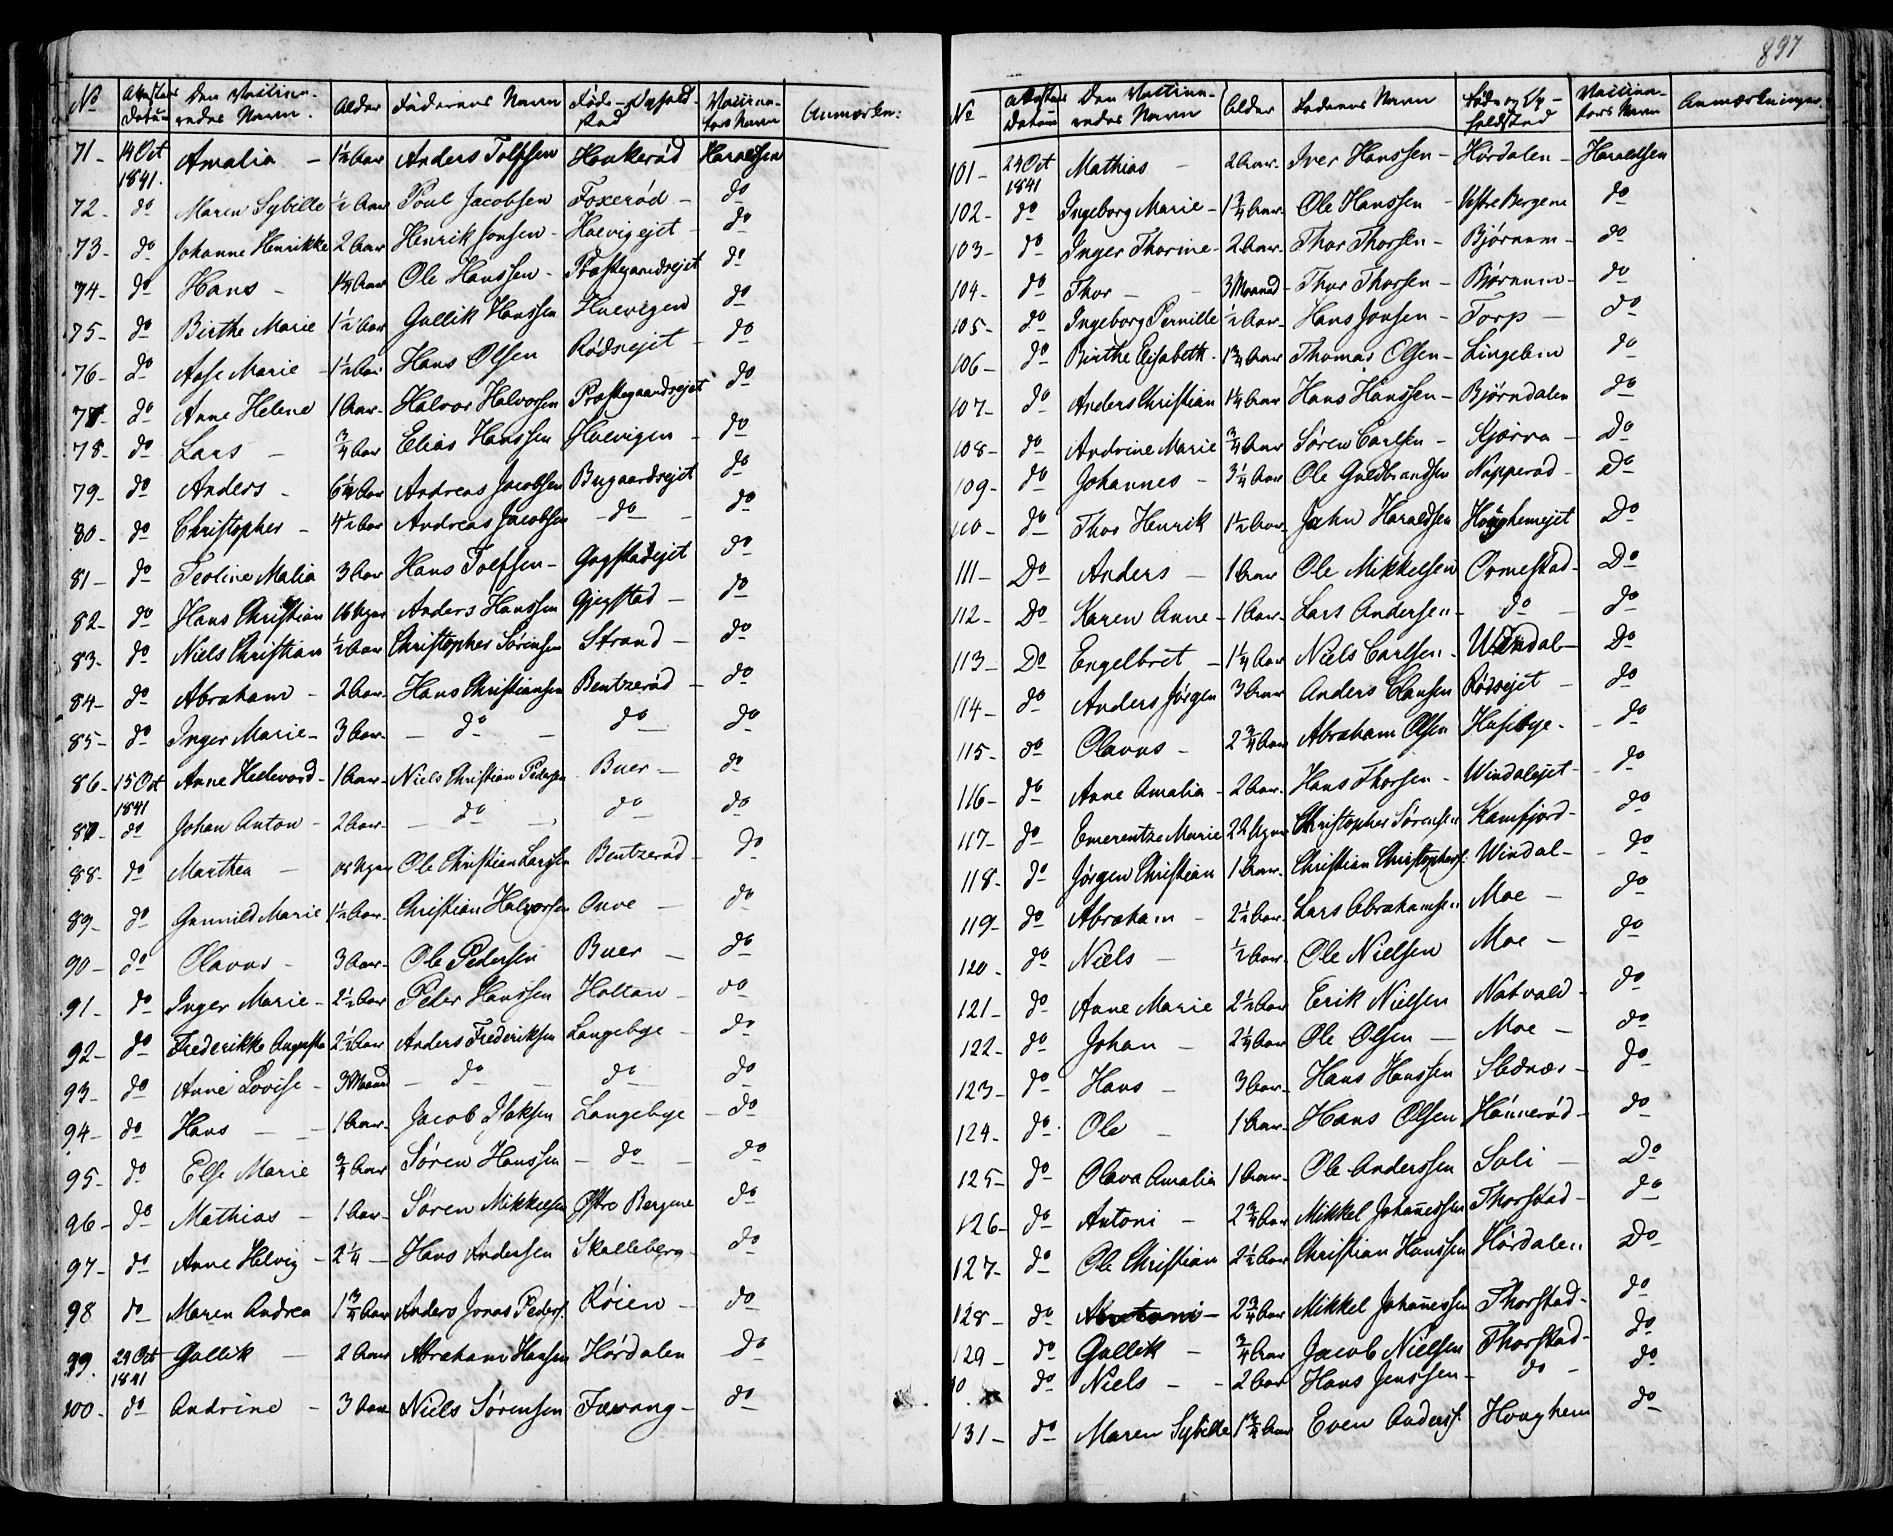 897
No Attestens Datum Den Vaccine-redes Navn. Alder Faderens Navn Føde- Opholdstad Vaccina-tørs Navn Anmærkn:
71- 14 Oct 1841. Amalia - 1½ Aar Anders Tolfsen Haukerød Haraldsen
72- do Maren Sybille ½ Aar Poul Jacobsen Foxerød - do
73- do Johanne Henrikke 2 Aar Henrik Jonsen - Hoevigejet - do
74- do Hans - 1¼ Aar Ole Hanssen - Præstegaardsejet do
75- do Birthe Marie 1½ Aar Gullik Hanssen Hoevigen do
76- do Aase Marie - 1½ Aar Hans Olsen Rødsejet - do
77- do Anne Helene 1 Aar- Halvor Halvorsen Præstegaardsejet do
78- do Lars - ¾ Aar Elias Hanssen Hoevigen - do
79- do Anders - 6¼ Aar Andreas Jacobsen Bugaardsejet do
80- do Christopher - 4½ Aar Andreas Jacobsen - do - do
81- do Teoline Malia 3 Aar Hans Tolfsen - Gogstadejet do
82- do Hans Christian 16 Uger Anders Hanssen Gjegstad - do
83- do Niels Christian ½ Aar Christopher Sørensen Strand - do
84- do Abraham - 2 Aar- Hans Christiansen Bentzerød - do
85- do Inger Marie - 3 Aar- - do - do do
86- 15 Oct 1841 Anne Hedevard - 1 Aar- Niels Christian Pedersen Buer - do
87- do Johan Anton - 2 Aar- - do - do do
88- do Marthea - 18 Uger Ole Christian Larssen Bentzerød - do
89- do Gunnild Marie 1½ Aar- Christian Halvorsen Auve - do
90- do Olavus - 3 Aar- Ole Pedersen Buer - do
91- do Inger Marie - 2½ Aar Peter Hanssen Holtan - do
92- do Frederikke Augusta 2½ Aar Anders Frederiksen Langebye - do
93- do Anne Lovise - 3 Maaned - do - do do
94- do Hans - 1 Aar- Jacob Isaksen Langebye - do
95- do Else Marie ¾ Aar Søren Hanssen - do - do
96- do Mathias - 1 Aar- Søren Mikkelsen Østre Bergene do
97- do Anne Helvig - 2¼ - Hans Andersen Skalleberg - do
98 do Maren Andrea 1¾ Aar Anders Jonas Peders. Røien - do
99. 29 Oct 1841 Gullik - 2 Aar Abraham Hansen Hørdalen do
100- do Andrine - 3 Aar Niels Sørensen Færvang - do
No Attestens Datum Den Vaccine-redes Navn Alder Faderens Navn Føde og Op-holdstad Vaccina-tørs Navn Anmærkninger.
101- 29 Oct 1841 Mathias - 2 Aar- Iver Hanssen - Hørdalen - Haraldsen
102- do Ingeborg Marie - 1¾ Aar- Ole Hanssen - Vestre Bergene do
103- do Inger Thorine - 2 Aar- Thor Thorsen - Bjørnum - do
104- do Thor - 3 Maaned - Thor Thorsen - Bjørnum - do
105- do Ingeborg Pernille ½ Aar- Hans Jonsen - Torp - do
106- do Birthe Elisabeth - 1¾ Aar Thomas Olsen - Lingelem do
107- do Anders Christian 1¼ Aar Hans Hanssen - Bjørndalen do
108- do Andrine Marie ¾ Aar Søren Carlsen - Kjærra - Do
109- do Johannes - 3¼ Aar Ole Guldbrandsen Napperød - Do
110- do Thor Henrik 1½ Aar- John Haraldsen Houghemejet Do
111- Do Anders - 1 Aar Ole Mikkelsen Ormestad - Do
112- Do Karen Anne - 1 Aar- Lars Andersen - do - do
113- Do Engelbret - 1¼ Aar Niels Carlsen - Windal - Do
114- do Anders Jørgen 3 Aar Anders Clausen Rødsejet - do
115- do Olavus - 2¾ Aar Abraham Olsen Husebye - do
116- do Anne Amalia - 2 Aar- Hans Thorsen - Windalejet - do
117- do Emerentze Marie 22 Uger Christopher Sørensen Kamfjord - do
118- do Jørgen Christian 1 Aar- Christian Christophers. Windal - do
119- do Abraham - 2½ Aar- Lars Abrahamsen Moe - do
120- do Niels - ½ Aar- Ole Nielsen Moe - do
121- do Anne Marie 2½ Aar Erik Nielsen Natvald - do
122- do Johan - 2¼ Aar Ole Olsen - Moe - do
123- do Hans - 3 Aar- Hans Hanssen Stednæs - do
124- do Ole - 1 Aar- Hans Olsen Hønnerød - do
125- do Olava Amalia 1 Aar- Ole Anderssen Soli - Do
126- do Antoni - 2¾ Aar Mikkel Johannessen Thorstad - do
127- do Ole Christian 2½ Aar Christian Hanssen Hørdalen Do
128- do Antoni - 2¾ Aar Mikkel Johannessen Thorstad - do
129- do Gullik - ¾ Aar Jacob Nielsen Thorstad - do
do Niels - 2 Aar Hans Jenssen - do - do
131- do Maren Sybille 1¾ Aar Even Anderss. Houghem do